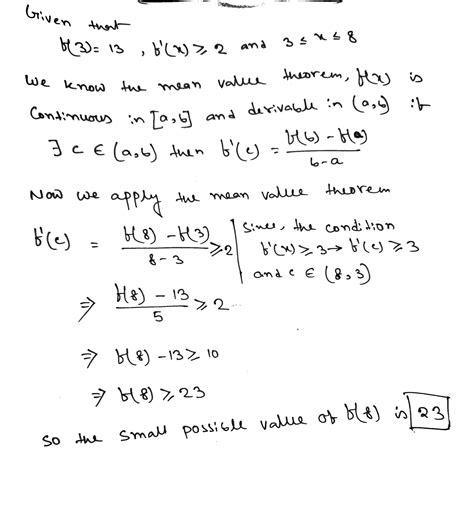 Given that
f(3) = 13 , f'(x) ≥ 2 and 3 ≤ x ≤ 8
We know the mean value theorem, f(x) is
Continuous in [a,b] and derivable in (a,b) if
∃ c ∈ (a,b) then f'(c) = f(b) - f(a) / b-a
Now we apply the mean value theorem
f'(c) = f(8) - f(3) / 8-3 ≥ 2
Since, the condition
f'(x) ≥ 3 → f'(c) ≥ 3
and c ∈ (8,3)
⇒ f(8) - 13 / 5 ≥ 2
⇒ f(8) - 13 ≥ 10
⇒ f(8) ≥ 23
So the small possible value of f(8) is 23